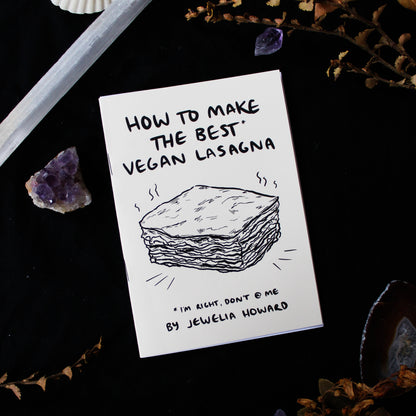 HOW TO MAKE
THE BEST*
VEGAN LASAGNA
*I'M RIGHT, DON'T @ ME
BY JEWELIA HOWARD